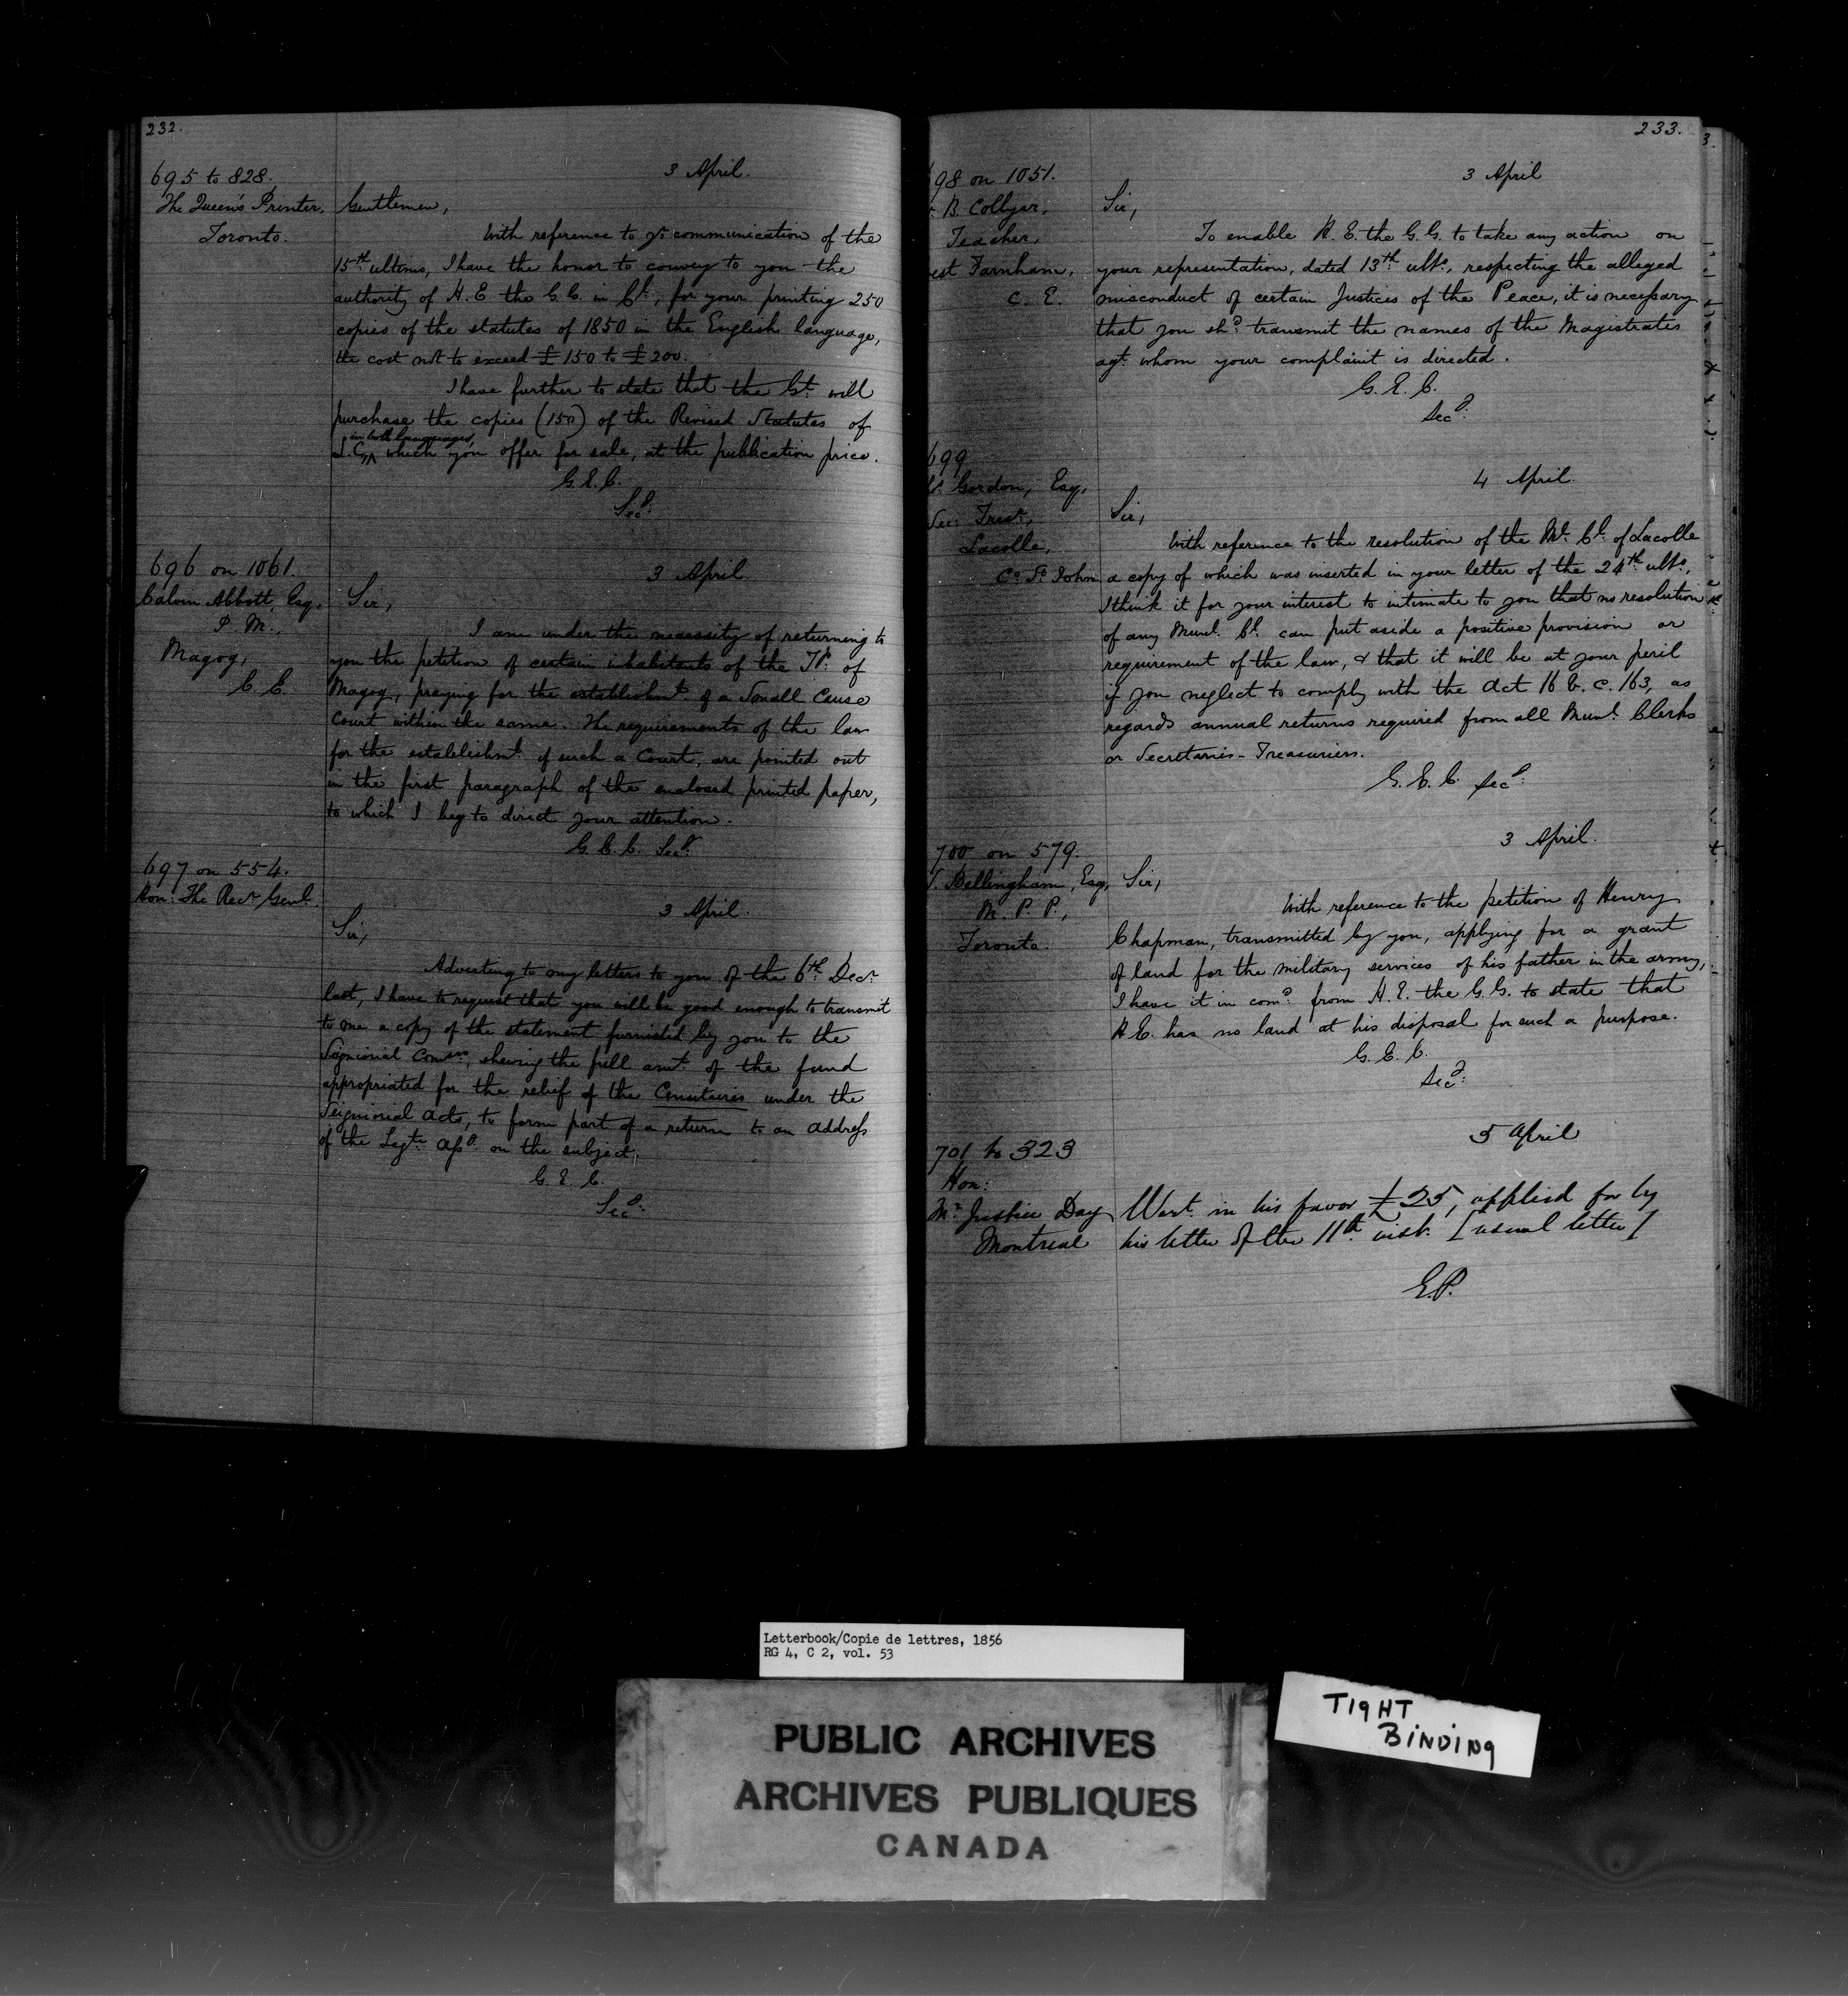 232.
695 to 828.
The Queen's Printer,
Toronto.
3 April.
Gentlemen,
With reference to yr. communication of the
15th ultimo, I have the honor to convey to you the
authority of H. E. the G. G. in Cl., for your printing 250
copies of the statutes of 1850 in the English language,
the cost not to exceed £150 to £200.
I have further to state that the Gt. will
purchase the copies (150) of the Revised Statutes of
in both languages,
L. C., which you offer for sale, at the publication price.
G. E. C.
Secy.
696 on 1061.
Calvin Abbott, Esq,
P. M.,
Magog,
C. E.
3 April.
Sir,
I am under the necessity of returning to
you the petition of certain inhabitants of the Tp. of
Magog, praying for the establishmt. of a Small Cause
Court within the same. The requirements of the law
for the establishmt. of such a Court, are pointed out
in the first paragraph of the enclosed printed paper,
to which I beg to direct your attention.
G. E. C. Secy.
697 on 554.
Hon: The Recr. Genl.
3 April.
Sir,
Adverting to my letters to you of the 6th Decr.
last, I have to request that you will be good enough to transmit
to me a copy of the statement furnished by you to the
Signiorial Comrs., shewing the full amt. of the fund
appropriated for the relief of the Censitaires under the
Seigniorial Acts, to form part of a return to an Address
of the Legte. Assy. on the subject.
G. E. C.
Secy.
233.
98 on 1051.
B. Collyer,
Teacher,
est Farnham,
C. E.
3 April
Sir,
To enable H. E. the G. G. to take any action on
your representation, dated 13th ulto., respecting the alleged
misconduct of certain Justices of the Peace, it is necessary
that you shd. transmit the names of the Magistrates
agt. whom your complaint is directed.
G. E. C.
Secy.
699
Gordon, Esq,
Sec: Treasr.
Lacolle,
Co. St. John
4 April.
Sir,
With reference to the resolution of the Ml. Cl. of Lacolle
a copy of which was inserted in your letter of the 24th ulto.,
I think it for your interest to intimate to you that no resolution
of any Munl. Cl. can put aside a positive provision or
requirement of the law, & that it will be at your peril
if you neglect to comply with the Act 16 V. c. 163, as
regards annual returns required from all Munl. Clerks
or Secretaries-Treasuriers.
G. E. C. Secy.
700 on 579.
Bellingham, Esq,
M. P. P.,
Toronto.
3 April.
Sir,
With reference to the petition of Henry
Chapman, transmitted by you, applying for a grant
of land for the military services of his father in the army,
I have it in comd. from H. E. the G. G. to state that
H. E. has no land at his disposal for such a purpose.
G. E. C.
Secy.
701 to 323
Hon:
Mr. Justice Day
Montreal
5 April
Wart. in his favor £25, applied for by
his letter of the 11th inst. [usual letter]
E.P.
Letterbook/Copie de lettres, 1856
RG 4, C 2, vol. 53
PUBLIC ARCHIVES
ARCHIVES PUBLIQUES
CANADA
TIGHT
BINDING